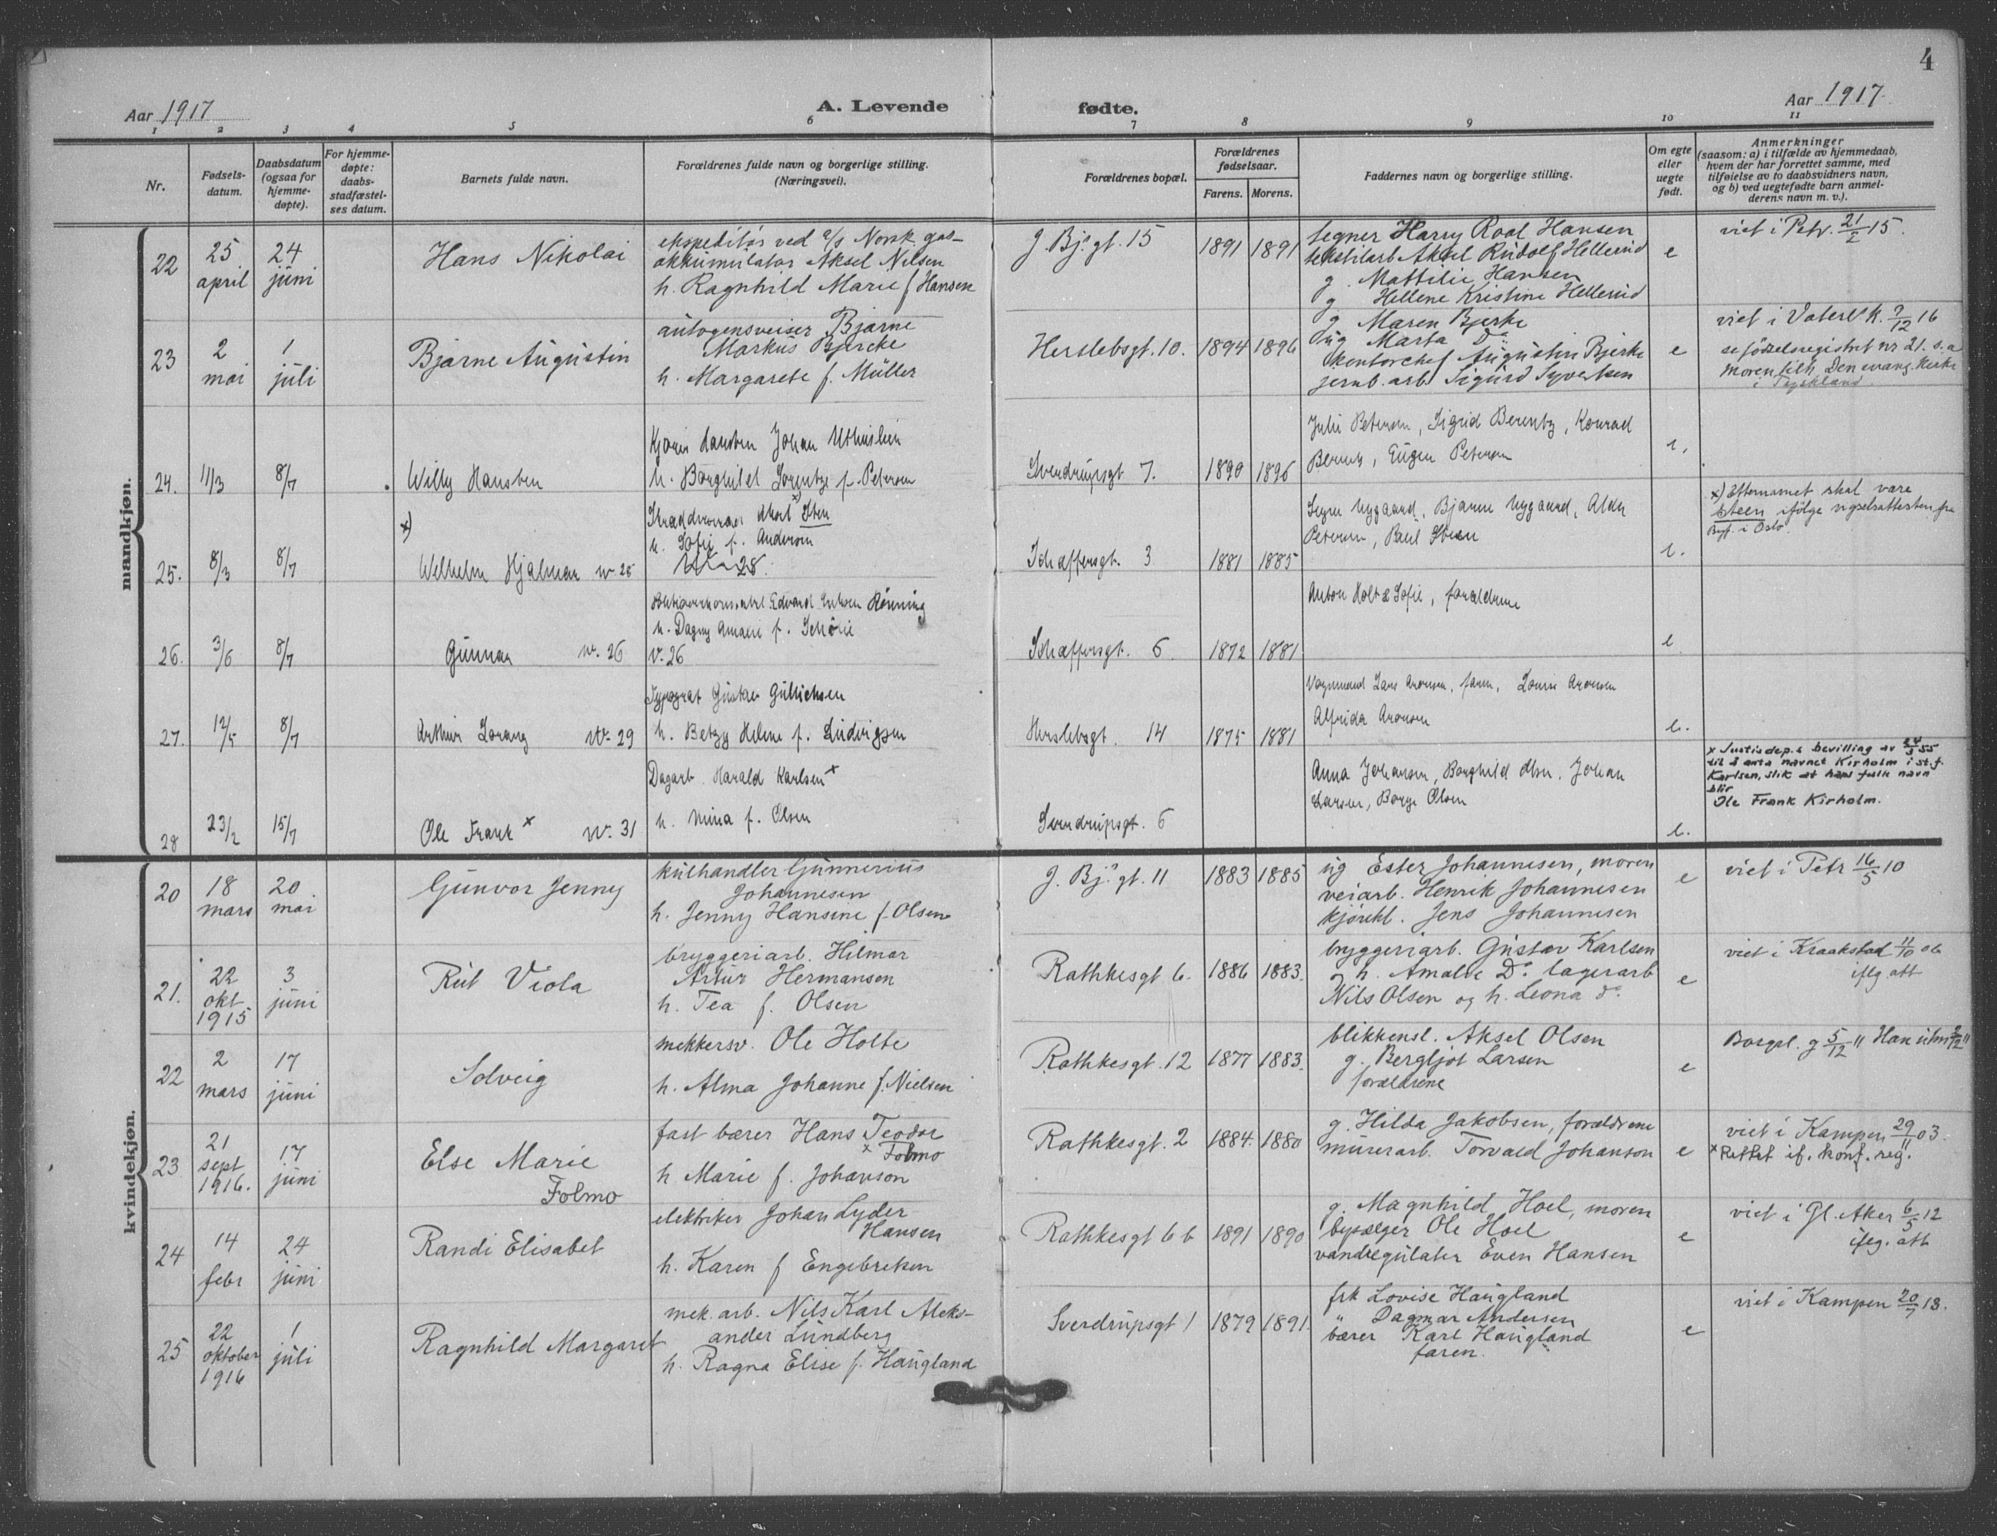 4
Aar 1917
A. Levende
fødte.
Aar 1917.
1 2 3 4 5 6 7 8 9 10 11
Nr.
Fødsels-
datum.
Daabsdatum
(ogsaa for
hjemme-
døpte).
For hjemme-
døpte:
daabs-
stadfæstel-
ses datum.
Barnets fulde navn.
Forældrenes fulde navn og borgerlige stilling.
(Næringsvei).
Forældrenes bopæl.
Forældrenes
fødselsaar.
Farens. Morens.
Faddernes navn og borgerlige stilling.
Om egte
eller
uegte
født.
Anmerkninger
(saasom: a) i tilfælde av hjemmedaab,
hvem der har forrettet samme, med
tilføielse av to daabsvidners navn,
og b) ved uegtefødte barn anmel-
derens navn m. v.).
mandkjøn.
22
25
april
24
juni
Hans Nikolai
ekspeditør ved a/s Norsk gas-
akkumulator Aksel Nilsen
h. Ragnhild Marie f Hansen
g. Bj.s gt. 15
1891 1891
tegner Harry Roal Hansen
tekstilarb Aksel Rudolf Hellerud
g. Mattilie Hansen
g Hellene Kristine Hellerud
e
viet i Petr. 21/2 15.
23
2
mai
1
juli
Bjarne Augustin
autogensveiser Bjarne
Markus Bjercke
h. Margarete f. Müller
Herslebsgt. 10.
1894 1896
g Maren Bjerke
ug Marta Do
kontorchef Augustin Bjerke
jernb. arb Sigurd Syvertsen
e
viet i Vaterl k. 7/12 16
se fødselsregistret nr 21. s.a
Moren tilh. Den evang. kirke
i Tyskland.
24.
11/3
8/7
Willy Hansten
Johan
h. Borghild f. Petersen
Sverdrupsgt 7.
1890 1896
Julie Petersen, Sigrid Berentz, Konrad
Berentz, Eugen Petersen
e.
25.
8/3
8/7
x)
Wilhelm Hjalmar nr 25
Sten x)
h. Sofie f. Andersen
28.
Schæffersgt. 3
1881 1885
Nygaard, Bjarne Nygaard,
Petersen, Paul Steen
e.
x) Efternavnet skal være
Steen ifølge vigselsattesten fra
Byf. i Oslo
26.
3/6
8/7
Gunnar nr. 26
Edvard Rønning
h. Dagny Amalie f.
v. 26
Schæffersgt. 6.
1872 1881
Anton Holt & Sofie, forældrene
e.
27.
12/5
8/7
Arthur nr. 29
Typograf Gustav Gullichsen
h. Betzy Helene f. Ludvigsen
Herslebsgt. 14
1875 1881
Lars Aronsen, faren, Louise Aronsen
Alfrida Aronsen
e.
28
23/2
15/7
Ole Frank x nr. 31
Dagarb. Harald Karlsen x
h. Mina f. Olsen
Sverdrupsgt. 6
Anna Johansen, Borghild Olsen. Johan
Larsen, Borge Olsen
e.
x Justisdep.s bevilling av 24/3 55
til å anta navnet Kirholm i st. f.
Karlsen, slik at hans fulle navn
blir
Ole Frank Kirholm.
kvindekjøn.
20
18
mars
20
mai
Gunvor Jenny
kulhandler Gunnerius
Johannesen
h. Jenny Hansine f. Olsen
g. Bj.s gt. 11
1883 1885
ug Ester Johannesen, moren
veiarb. Henrik Johannesen
kjørekl. Jens Johannesen
e
viet i Petr 16/5 10
21.
22
okt
1915
3
juni
Rut Viola
bryggeriarb. Hilmar
Artur Hermansen
h. Tea f. Olsen
Rathkesgt 6.
1886 1883.
bryggeriarb. Gustav Karlsen
og h. Amalie Do lagerarb
Nils Olsen og h. Leona do
e
viet i Kraakstad 11/10 06
iflg att
22
2
mars
17
juni
Solveig
mekkersv. Ole Holte
h. Alma Johanne f. Nielsen
Rathkesgt. 12
1877 1883.
blikkensl. Aksel Olsen
g. Bergljot Larsen
forældrene
e
Borgvl. g 5/12 11
23
21
sept
1916.
17
juni
Else Marie
Folmo
fast bærer Hans Teodor
x Folmo
h Marie f. Johanson
Rathkesgt. 2
1884. 1880
g. Hilda Jakobsen, forældrene
murerarb. Torvald Johanson
e
viet i Kampen 29/11 03.
x Rettet if. konf. reg.
24
14
febr
24
juni
Randi Elisabet
elektriker Johan Lyder
Hansen
h. Karen f Engebretsen
Rathkesgt 6 b
1891 1890
g. Magnhild Hoel, moren
Ole Hoel
vandregulater Even Hansen
e
viet i Gl. Aker 6/5 12
iflg. att
25
22
oktober
1916
1
juli
Ragnhild Margaret
mek. arb. Nils Karl Aleks-
ander Lundberg
h. Ragna Elise f. Haugland
Sverdrupsgt 1
1879 1891.
frk Lovise Haugland
" Dagmar Andersen
bærer Karl Haugland
faren.
e
viet i Kampen 20/7 13.